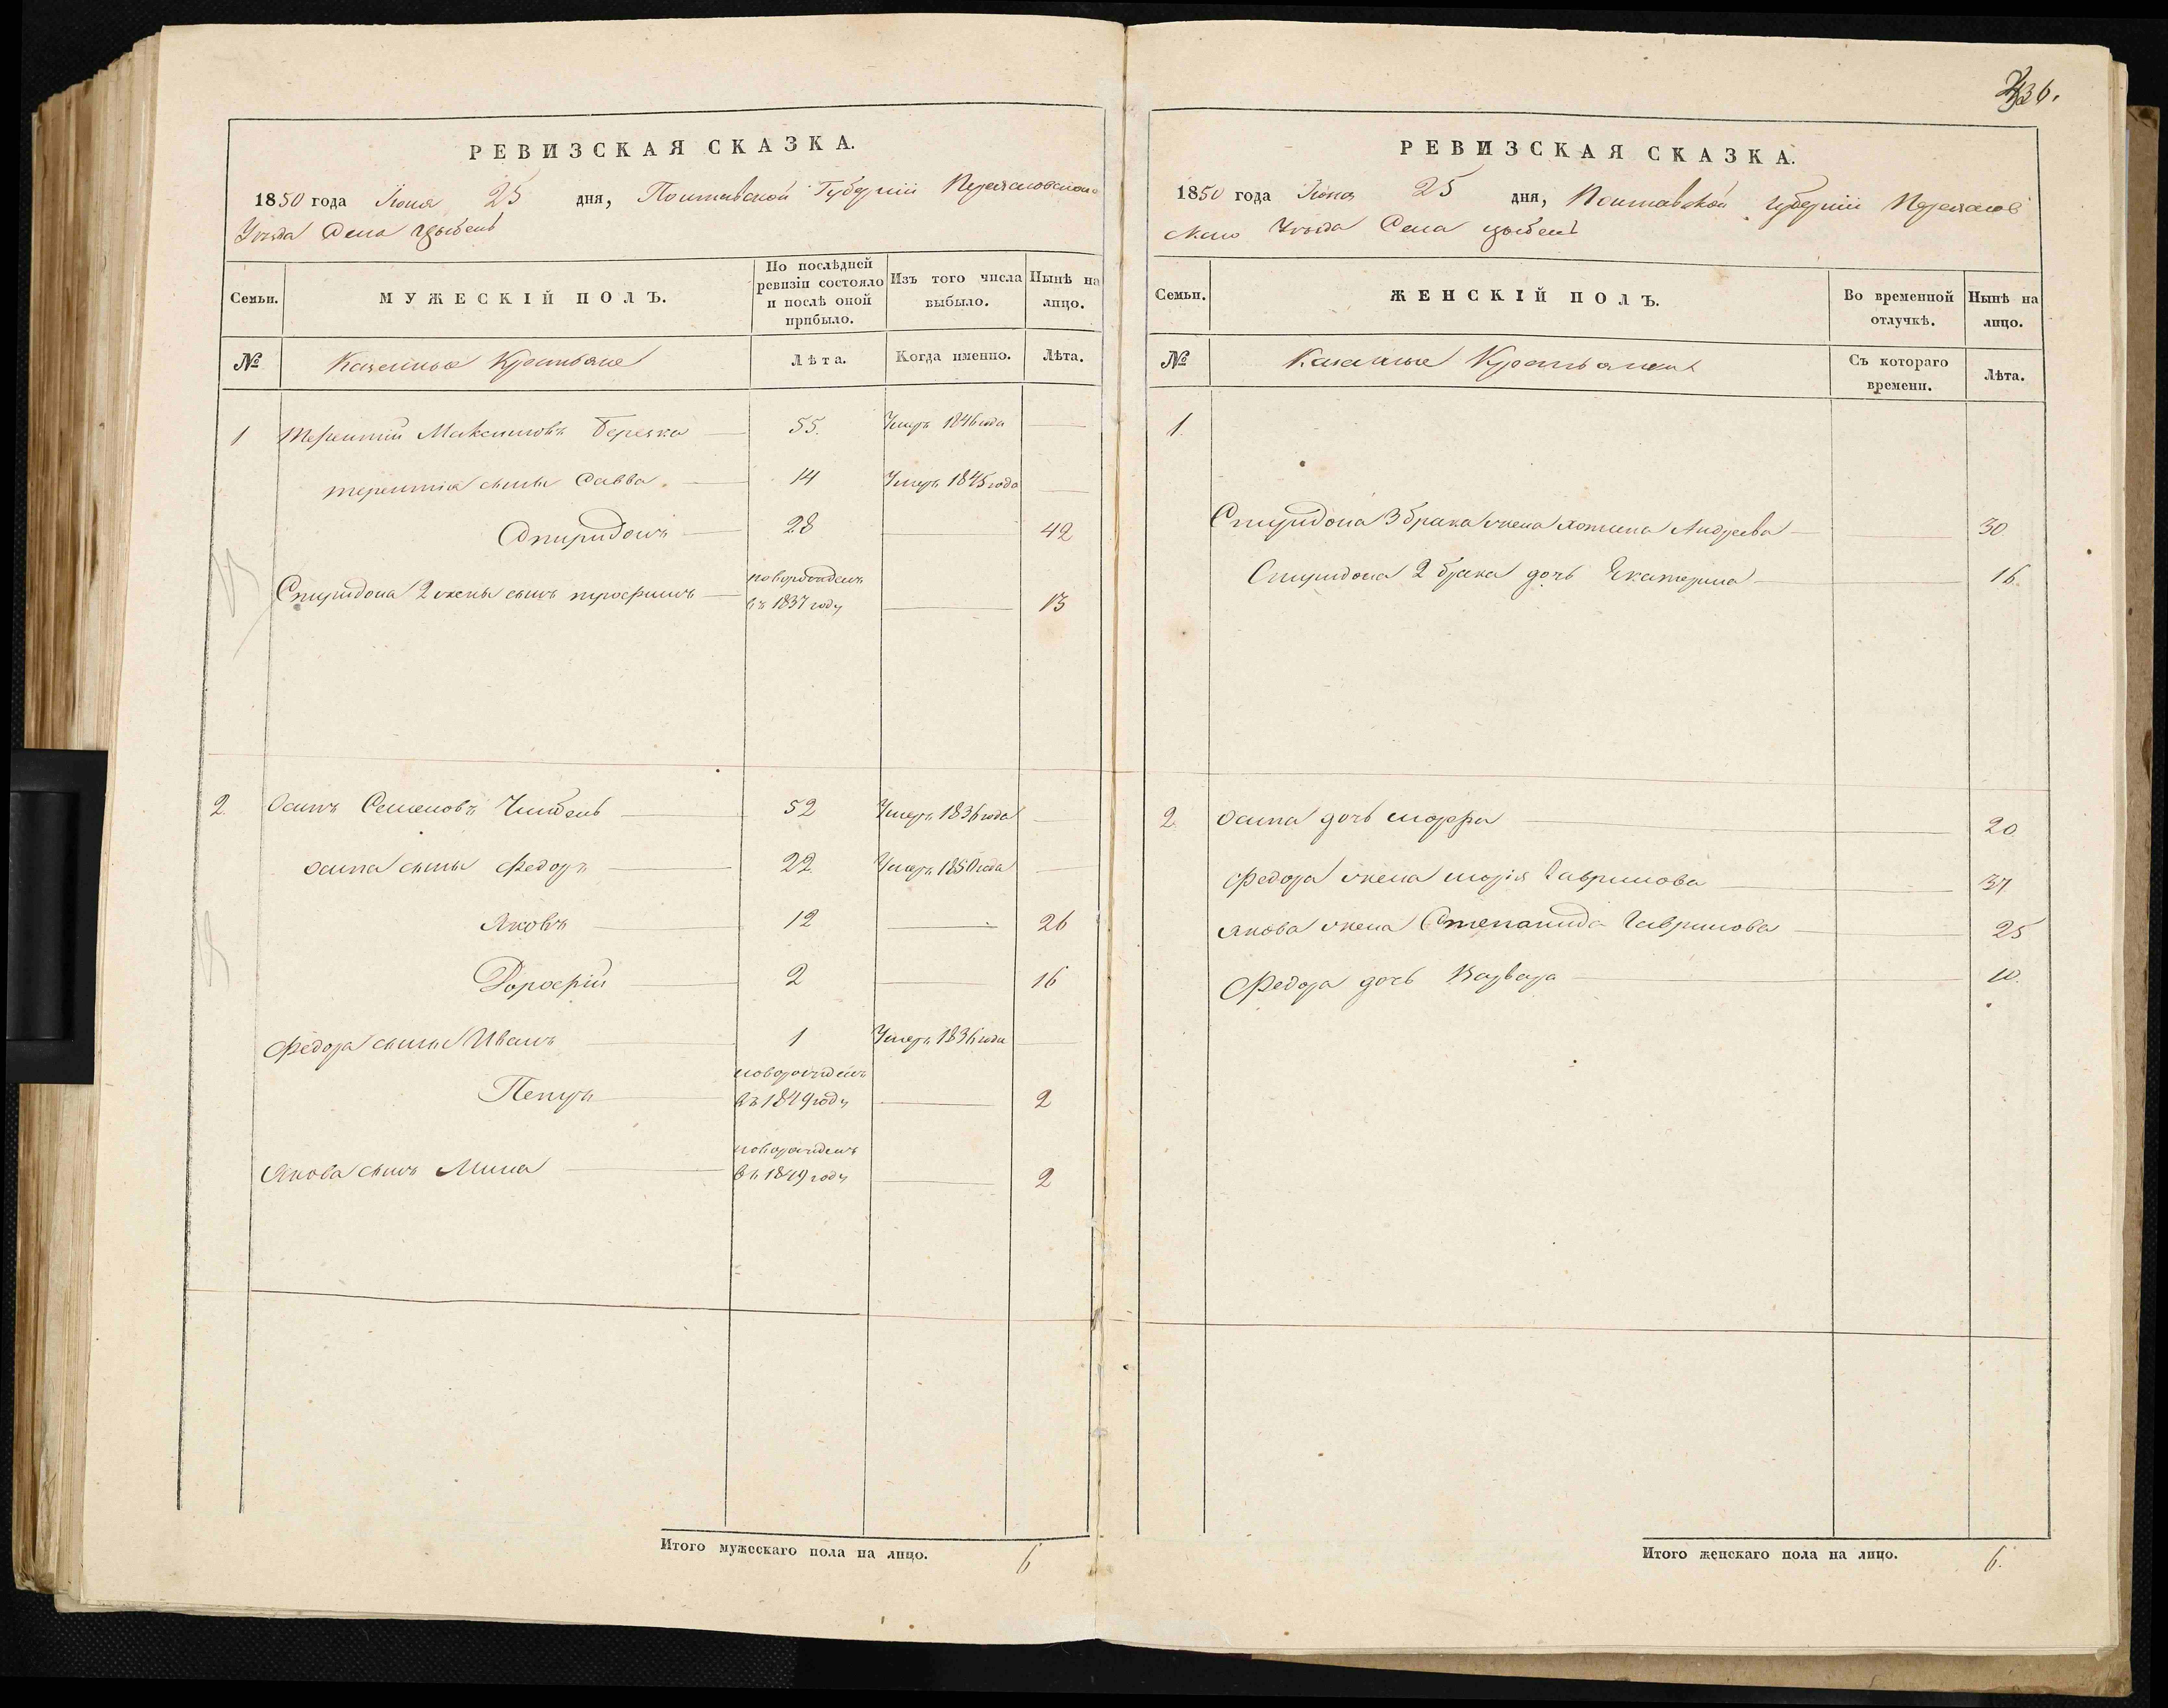 436.
РЕВИЗСКАЯ СКАЗКА.
1850 года Іюня 25 дня, Полтавской Губерніи Переяславского
Уезда Села Цыбель
Семьи.
МУЖЕСКІЙ ПОЛЪ.
По послѣдней ревизіи состояло и послѣ оной прибыло.
Изъ того числа выбыло.
Нынѣ на лицо.
№
Казенные Крестьяне
Лѣта.
Когда именно.
Лѣта.
1 Терентій Максимовъ Березка 55. Умеръ 1846 года
Терентія сыны Савва 14 Умеръ 1845 года
Спиридонъ 28 42
Спиридона 2 жены сынъ Трофимъ новорожденъ въ 1837 году 13
2. Осипъ Семеновъ 52 Умеръ 1836 года
Осипа сыны Федоръ 22. Умеръ 1850 года
Яковъ 12 26
Дорофій 2 16
Федора сыны Иванъ 1 Умеръ 1836 года
Петръ новорожденъ въ 1849 году 2
Якова сынъ Мина новорожденъ въ 1849 году 2
Итого мужескаго пола на лицо. 6
РЕВИЗСКАЯ СКАЗКА.
1850 года Іюня 25 дня, Полтавской Губерніи Переяслов
ского Уезда Села Цыбель
Семьи.
ЖЕНСКІЙ ПОЛЪ.
Во временной отлучкѣ.
Нынѣ на лицо.
№
Казенные Крестьяне
Съ котораго времени.
Лѣта.
1.
Спиридона 3 брака жена Хотина Андреева 30.
Спиридона 2 брака дочь Екатерина 16.
2. Осипа дочь Марфа 20
Федора жена Марія Гаврилова 37
Якова жена Степанида Гаврилова 25
Федора дочь Варвара 10.
Итого женскаго пола на лицо. 6.